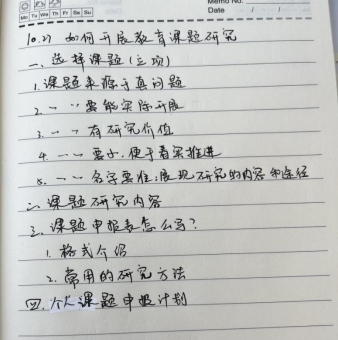 Memo No.
Mo Tu We Th Fr Sa Su
Date / /
10.27 如何开展教育课题研究
一、选择课题(立项)
1. 课题来源于真问题
2. 〃 〃 要能实际开展
3. 〃 〃 有研究价值
4. 〃 〃 要小,便于着实推进
5. 〃 〃 名字要准:展现研究的内容和途径
二、课题研究内容
三、课题申报表怎么写?
1. 格式介绍
2. 常用的研究方法
四、个人课题申报计划